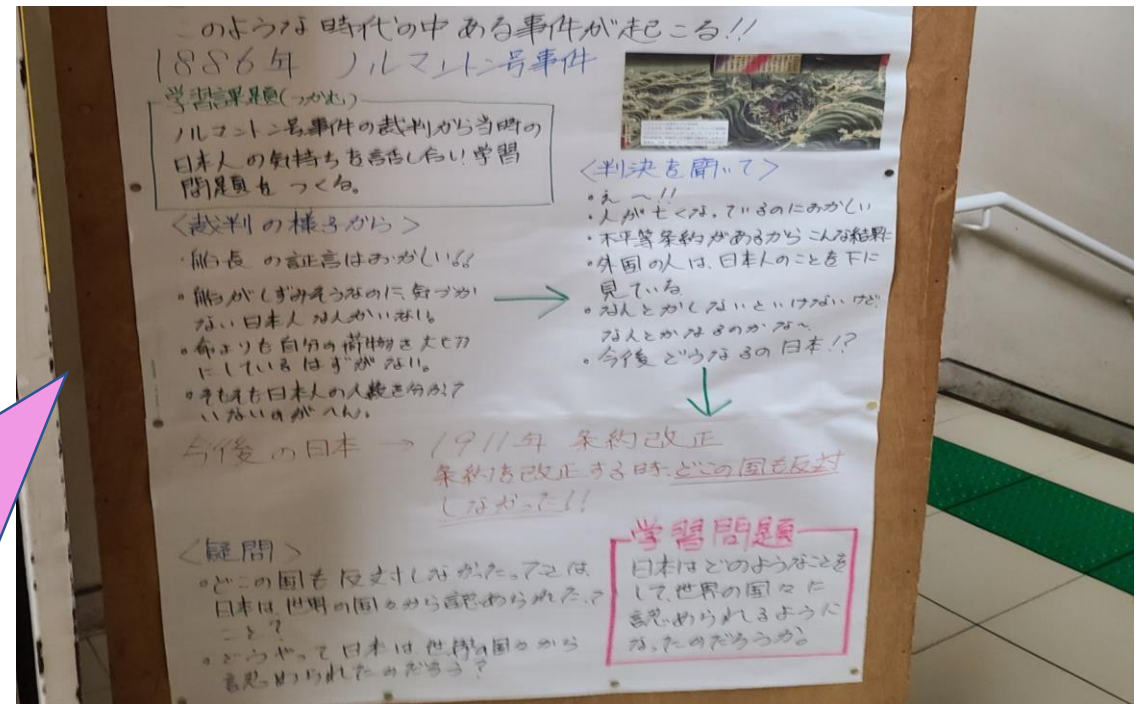 このような時代の中ある事件が起こる!!
1886年 ノルマントン号事件
学習課題(つかむ)
ノルマントン号事件の裁判から当時の
日本人の気持ちを話し合い学習
問題をつくる。
<裁判の様子から>
・船長の証言はおかしい!!
・船がしずみそうなのに、気づか
ない日本人なんかいない。
・命よりも自分の荷物を大切
にしているはずがない。
・そもそも日本人の人数を分かって
いないのがへん。
<判決を聞いて>
・え〜!!
・人が亡くなっているのにおかしい
・不平等条約があるからこんな結果に
・外国の人は、日本人のことを下に
見ている
・なんとかしないといけないけど、
なんとかなるのかな〜
・今後どうなるの日本!?
今後の日本 → 1911年 条約改正
条約を改正する時、どこの国も反対
しなかった!!
<疑問>
・どこの国も反対しなかったってことは、
日本は、世界の国々から認められたって
こと?
・どうやって日本は世界の国々から
認められたのだろう?
学習問題
日本はどのようなことを
して、世界の国々に
認められるように
なったのだろうか。